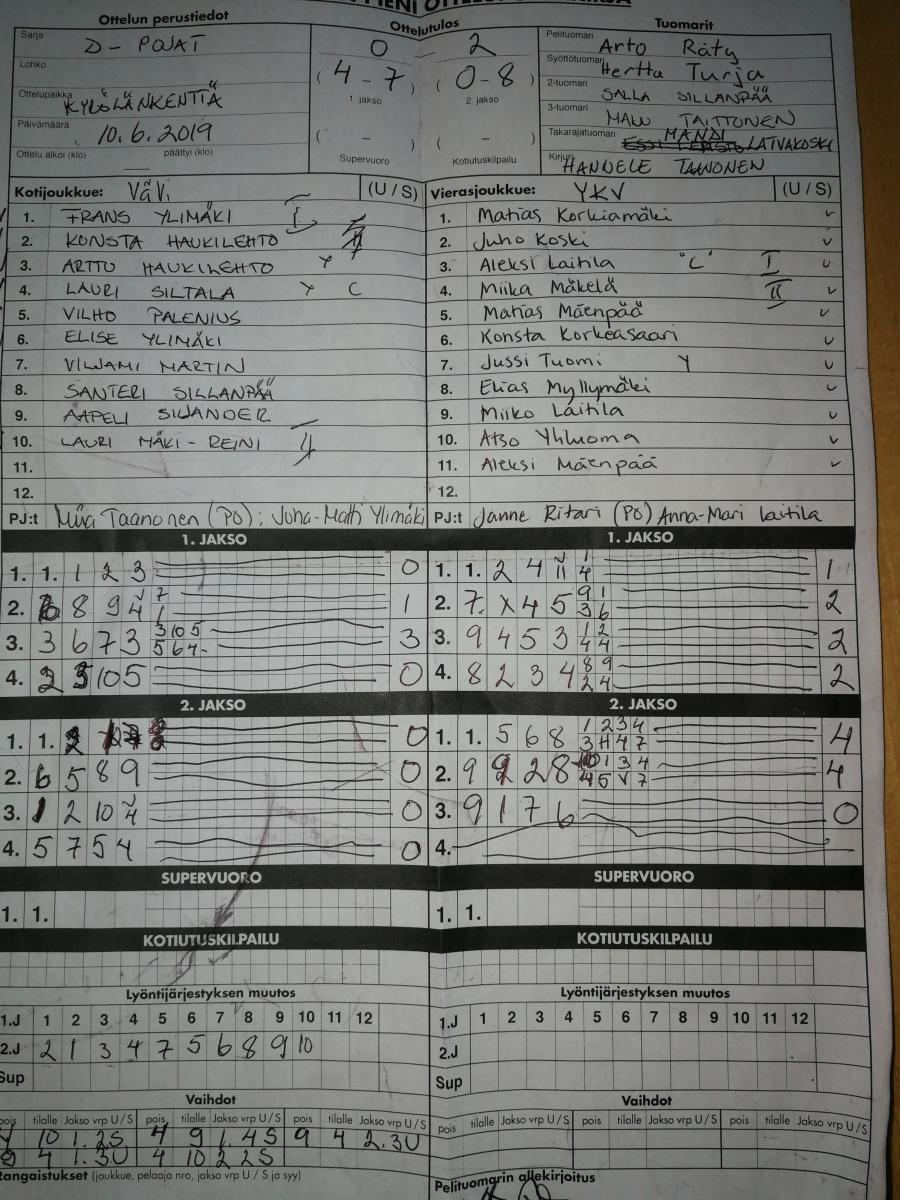 Ottelun perustiedot
Ottelutulos
Tuomarit
Sarja D-POJAT
Lohko
Ottelupaikka
Päivämäärä 10.6.2019
Ottelu alkoi (klo) päättyi (klo)
0 2
(4-7) (0-8)
1. jakso 2. jakso
(-) (-)
Supervuoro Kotiutuskilpailu
Pelituomari Arto Räty
Syöttötuomari Hertta Turja
2-tuomari SALLA SILLANPÄÄ
3-tuomari TAITTONEN
Takarajatuomari LAIVAKOSKI
Kirjuri HANNELE TAANONEN
Kotijoukkue: VäVi (U / S)
1. FRANS YLIMÄKI I
2. KONSTA HAUKILEHTO
3. ARTTO HAUKILEHTO Y
4. LAURI SILTALA Y C
5. VILHO PALENIUS
6. ELISE YLIMÄKI
7. VILJAMI MARTIN
8. SANTERI SILLANPÄÄ
9. AAPELI SILANDER
10. LAURI MÄKI-REINI
11.
12.
PJ:t Miia Taanonen (PO); Juha-Matti Ylimäki
Vierasjoukkue: YKV (U / S)
1. Matias Korkiamäki
2. Juho Koski
3. Aleksi Laitila "C" I
4. Miika Mäkelä II
5. Matias Mäenpää
6. Konsta Korkeasaari
7. Jussi Tuomi Y
8. Elias Myllymäki
9. Miiko Laitila
10. Atso Yliluoma
11. Aleksi Mäenpää
12.
PJ:t Janne Ritari (PO) Anna-Mari Laitila
1. JAKSO
1. 1. 1 2 3 0
2. 8 9 4 1
3. 3 6 7 3 3 10 5 5 6 4 3
4. 10 5 0
2. JAKSO
1. 1. 0
2. 6 5 8 9 0
3. 1 2 10 4 0
4. 5 7 5 4 0
SUPERVUORO
1. 1.
KOTIUTUSKILPAILU
1. JAKSO
1. 1. 2 4 11 1 4 1
2. 7 X 4 5 9 1 3 6 2
3. 9 4 5 3 1 2 4 4 2
4. 8 2 3 4 8 9 2 4 2
2. JAKSO
1. 1. 5 6 8 1 2 3 4 3 H 4 7 4
2. 9 2 8 1 3 4 4 5 V 7 4
3. 9 1 7 6 0
4.
SUPERVUORO
1. 1.
KOTIUTUSKILPAILU
Lyöntijärjestyksen muutos
1.J 1 2 3 4 5 6 7 8 9 10 11 12
2.J 2 1 3 4 7 5 6 8 9 10
Sup
Vaihdot
pois tilalle Jakso vrp U / S pois tilalle Jakso vrp U / S pois tilalle Jakso vrp U / S
10 1.2S 4 9 1.4S 9 4 2.3U
4 1.3U 4 10 2 2S
Rangaistukset (joukkue, pelaaja nro, jakso vrp U / S ja syy)
Lyöntijärjestyksen muutos
1.J 1 2 3 4 5 6 7 8 9 10 11 12
2.J
Sup
Vaihdot
pois tilalle Jakso vrp U / S pois tilalle Jakso vrp U / S pois tilalle Jakso vrp U / S
Pelituomarin allekirjoitus